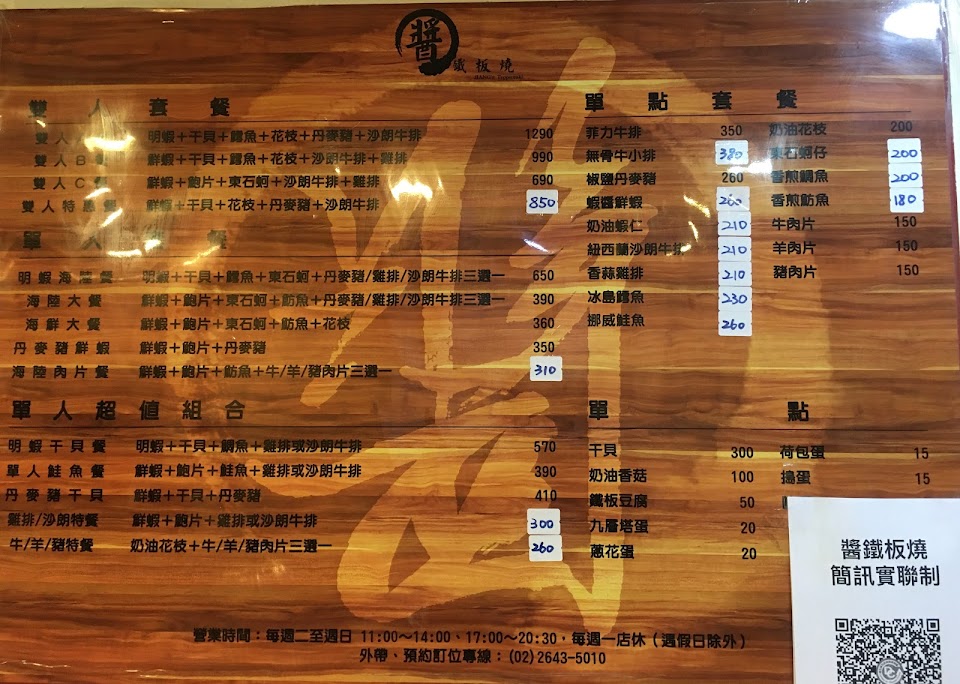 醬
鐵板燒
雙人套餐
雙人A餐 明蝦+干貝+鱈魚+花枝+丹麥豬+沙朗牛排 1290
雙人B餐 鮮蝦+干貝+鱈魚+花枝+沙朗牛排+雞排 990
雙人C餐 鮮蝦+鮑片+東石蚵+沙朗牛排+雞排 690
雙人特惠餐 鮮蝦+干貝+花枝+丹麥豬+沙朗牛排 850
單人套餐
明蝦海陸餐 明蝦+干貝+鱈魚+東石蚵+丹麥豬/雞排/沙朗牛排三選一 650
海陸大餐 鮮蝦+鮑片+東石蚵+魴魚+丹麥豬/雞排/沙朗牛排三選一 390
海鮮大餐 鮮蝦+鮑片+東石蚵+魴魚+花枝 360
丹麥豬鮮蝦 鮮蝦+鮑片+丹麥豬 350
海陸肉片餐 鮮蝦+鮑片+魴魚+牛/羊/豬肉片三選一 310
單人超值組合
明蝦干貝餐 明蝦+干貝+鯛魚+雞排或沙朗牛排 570
單人鮭魚餐 鮮蝦+鮑片+鮭魚+雞排或沙朗牛排 390
丹麥豬干貝 鮮蝦+干貝+丹麥豬 410
雞排/沙朗特餐 鮮蝦+鮑片+雞排或沙朗牛排 300
牛/羊/豬特餐 奶油花枝+牛/羊/豬肉片三選一 260
單點套餐
菲力牛排 350 奶油花枝 200
無骨牛小排 380 東石蚵仔 200
椒鹽丹麥豬 260 香煎鯛魚 200
蝦醬鮮蝦 260 香煎魴魚 180
奶油蝦仁 210 牛肉片 150
紐西蘭沙朗牛排 210 羊肉片 150
香蒜雞排 210 豬肉片 150
冰島鱈魚 230
挪威鮭魚 260
單點
干貝 300 荷包蛋 15
奶油香菇 100 搗蛋 15
鐵板豆腐 50
九層塔蛋 20
蔥花蛋 20
營業時間：每週二至週日 11:00～14:00、17:00～20:30，每週一店休（遇假日除外）
外帶、預約訂位專線：(02)2643-5010
醬鐵板燒
簡訊實聯制